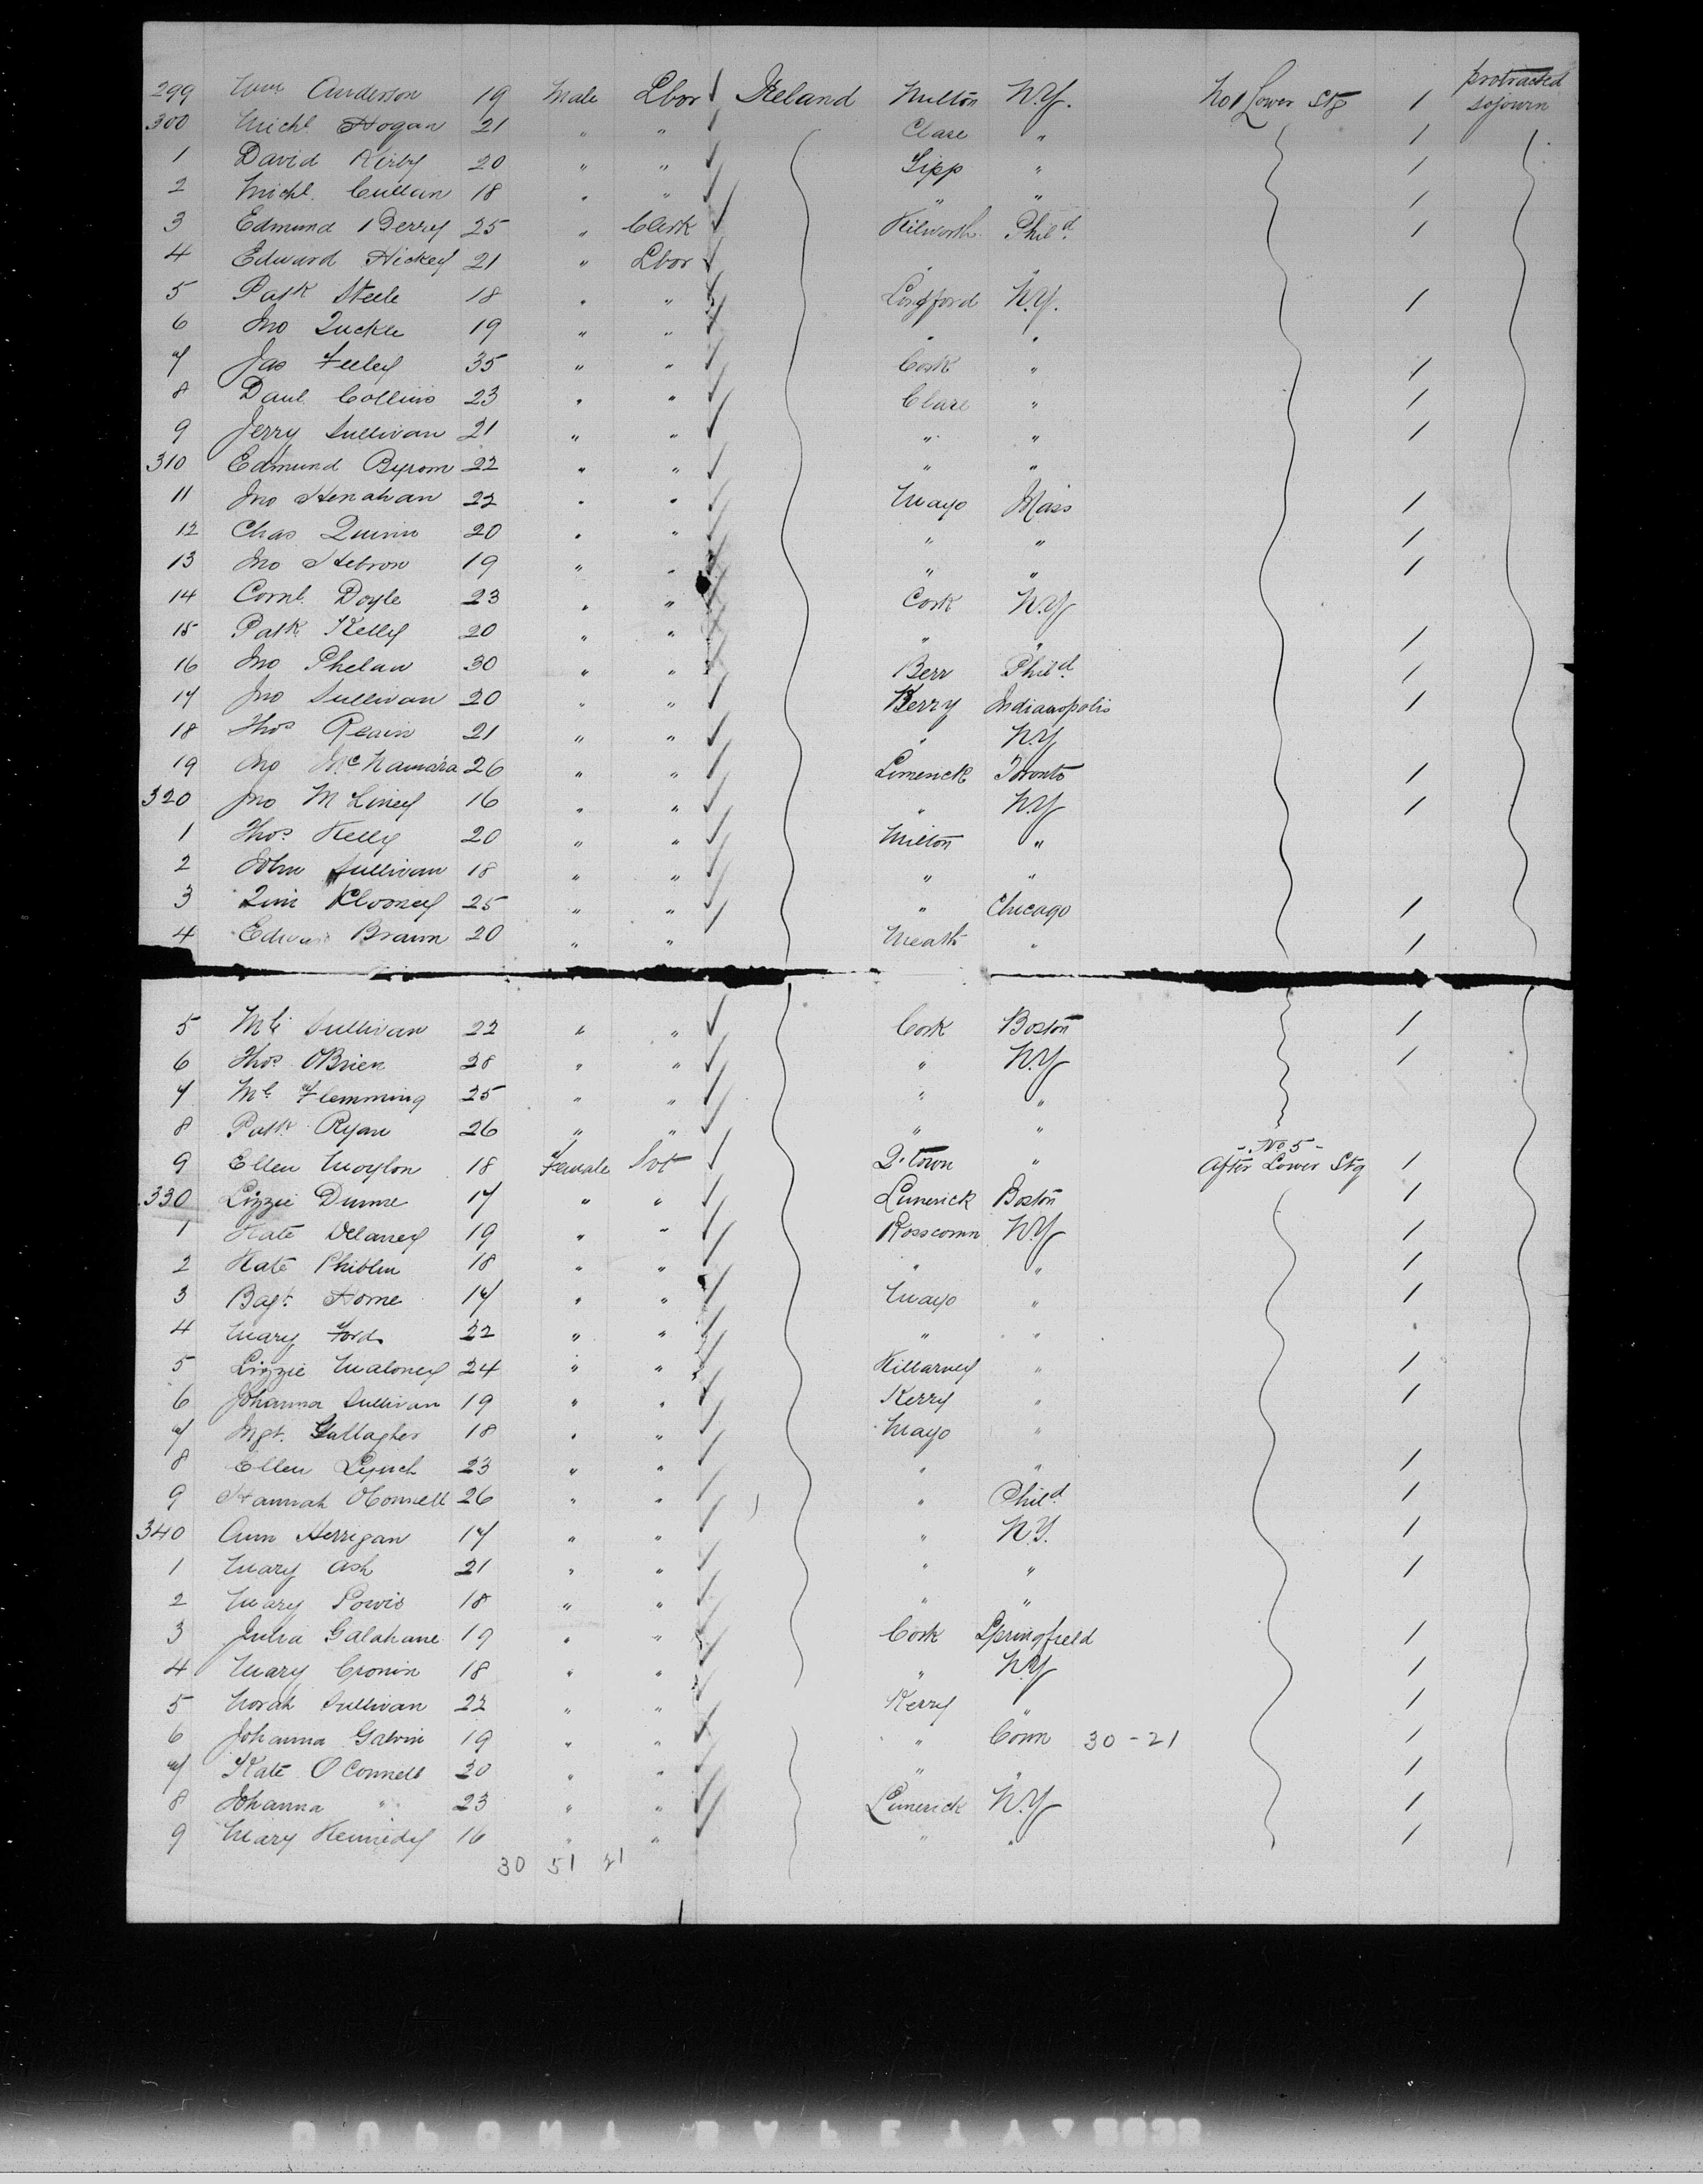 299 Wm Anderson 19 Male Lbor Ireland Milton N.Y. No 1 Lower Stg 1 protracted sojourn
300 Michl Hogan 21 " " Clare " 1
1 David Kirby 20 " " Tipp " 1
2 Michl. Cullan 18 " " " " 1
3 Edmund Berry 25 " Clerk Kilworth Phild. 1
4 Edward Hickey 21 " Lbor " "
5 Patk Steele 18 " " Longford N.Y. 1
6 Jno 19 " " " "
7 Jas Feeley 35 " " Cork " 1
8 Danl. Collins 23 " " Clare " 1
9 Jerry Sullivan 21 " " " " 1
310 Edmund Byrom 22 " " " "
11 Jno Henahan 22 " " Mayo Mass 1
12 Chas Quinn 20 " " " " 1
13 Jno Hebron 19 " " " " 1
14 Cornl. Doyle 23 " " Cork N.Y
15 Patk Kelly 20 " " " " 1
16 Jno Phelan 30 " " Berr Phild. 1
17 Jno Sullivan 20 " " Kerry Indianapolis 1
18 Thos Reain 21 " " " N.Y
19 Jno McNamara 26 " " Limerick Toronto 1
320 Jno M 16 " " " N.Y 1
1 Thos. Kelly 20 " " Milton "
2 John Sullivan 18 " " " "
3 25 " " " Chicago 1
4 Edward Braun 20 " " Meath " 1
5 Ml. Sullivan 22 " " Cork Boston 1
6 Thos. OBrien 28 " " " N.Y 1
7 Ml. Flemming 25 " " " "
8 Patk Ryan 26 " " " "
- No 5 -
9 Ellen Moylon 18 Female Svt Q. town " After Lower Stg 1
330 Lizzie Dunne 17 " " Limerick Boston 1
1 Kate Delaney 19 " " Rosscomn N.Y 1
2 Kate Phiblin 18 " " " " 1
3 Bagt. Horne 17 " " Mayo " 1
4 Mary Ford 22 " " " "
5 Lizzie Maloney 24 " " Killarney " 1
6 Johanna Sullivan 19 " " Kerry " 1
7 Mgt. Gallagher 18 " " Mayo "
8 Ellen Lynch 23 " " " " 1
9 Hannah OConnell 26 " " " Phild. 1
340 Ann Herrigan 17 " " " N.Y. 1
1 Mary Ash 21 " " " " 1
2 Mary Powis 18 " " " "
3 Julia Galahane 19 " " Cork Springfield 1
4 Mary Cronin 18 " " " N.Y 1
5 Norah Sullivan 22 " " Kerry " 1
6 Johanna Galvin 19 " " " Conn 30 - 21 1
7 Kate OConnell 20 " " " " 1
8 Johanna " 23 " " Limerick N.Y 1
9 Mary Kennedy 16 " " " " 1
30 51 21